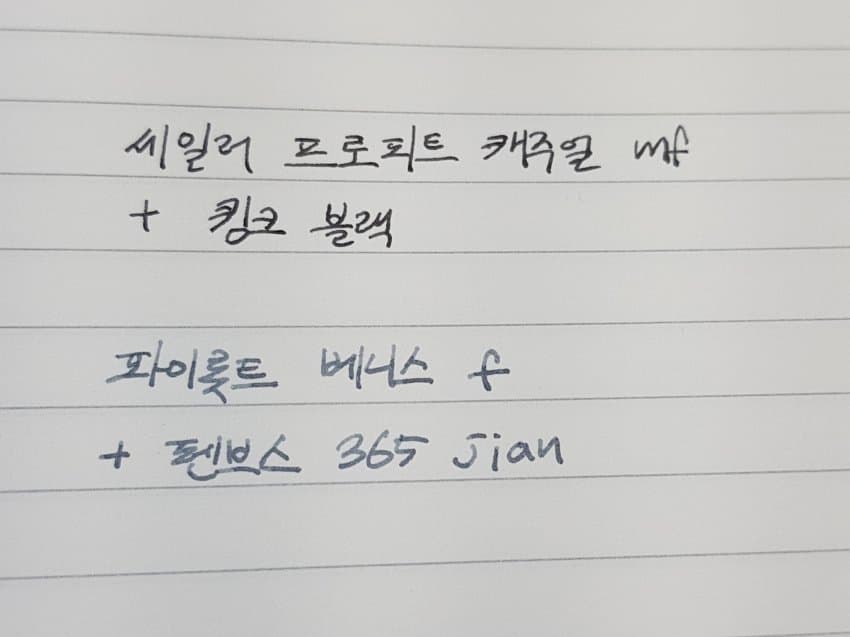 세일러 프로피트 캐주얼 mf
+ 킹크 블랙
파이롯트 베니스 f
+ 펜브스 365 Jian